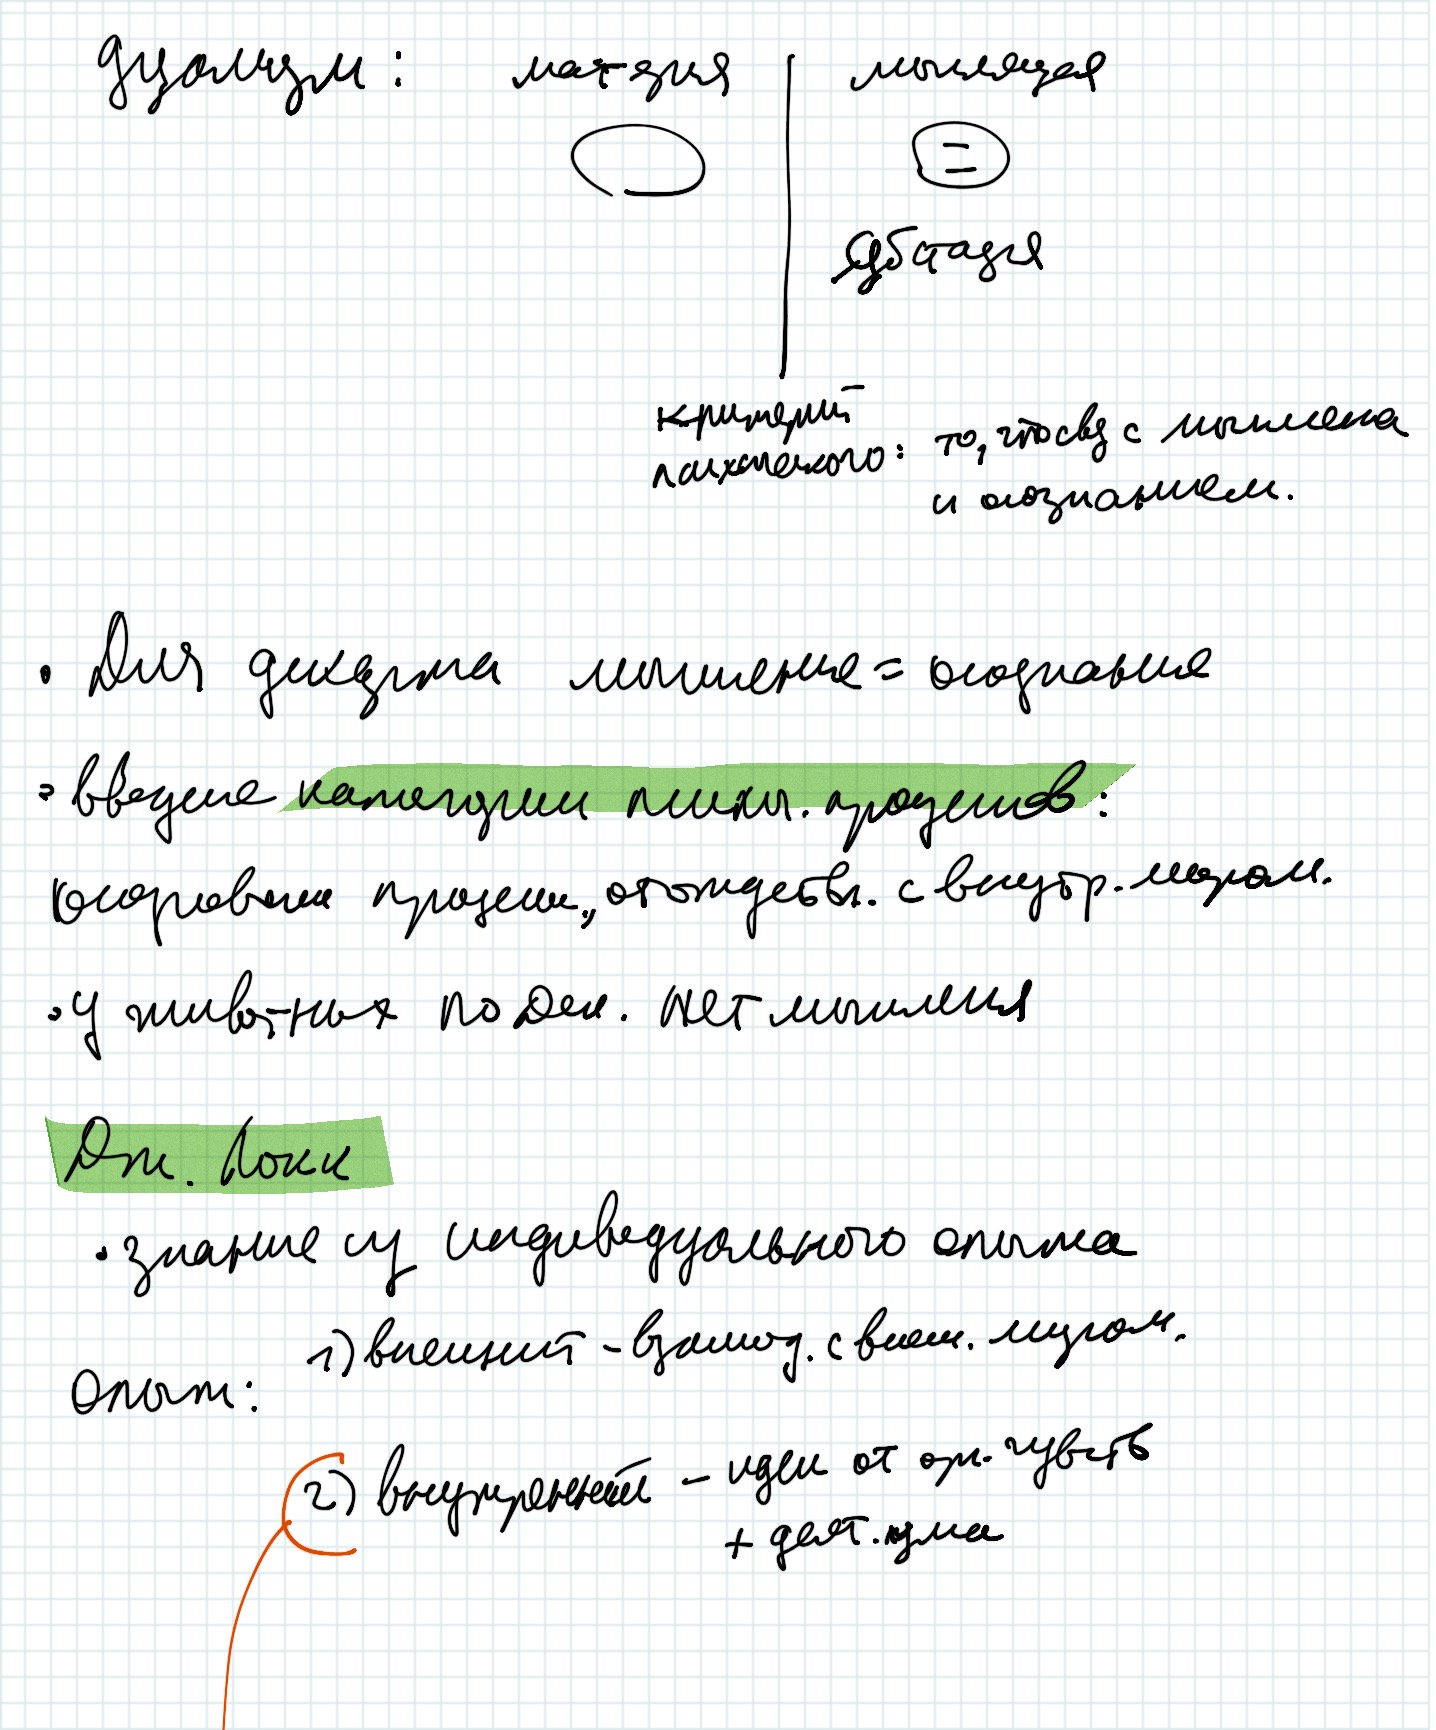 дуализм: материя | мыслящая
субстанция
критерий
психического: то, что связ с мышлена
и осознанием.
• Для декарта мышление = осознание
• введение категории психи. процессов:
процессы, отождествл. с внутр. миром.
• У животных по Дек. нет мышления
Дж. Локк
• знание из индивидуального опыта
1) внешний - взаимод. с внеш. миром.
Опыт:
2) внутренний - идеи от орг. чувств
+ деят. ума